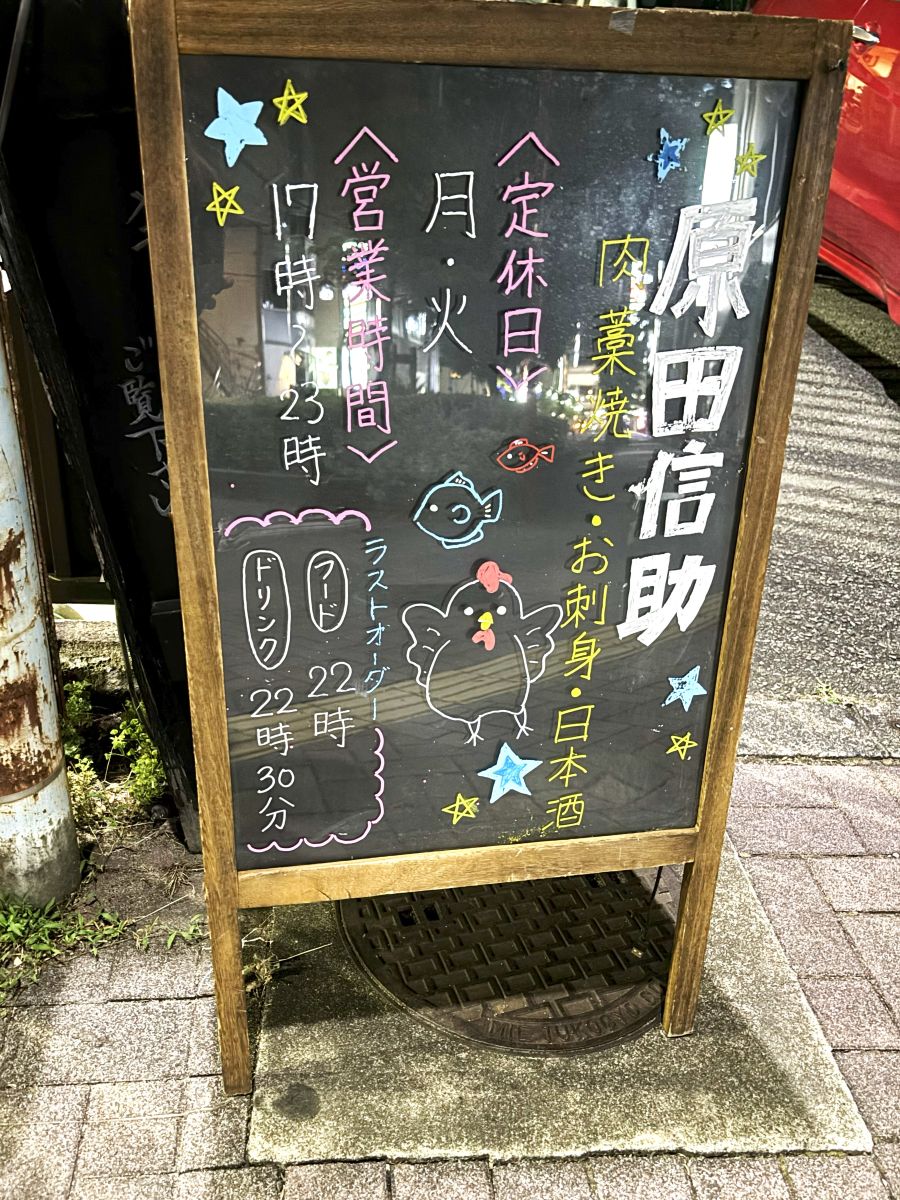 原田信助
肉藁焼き・お刺身・日本酒
〈定休日〉
月・火
〈営業時間〉
17時〜23時
ラストオーダー
フード 22時
ドリンク 22時30分
ご覧下さい